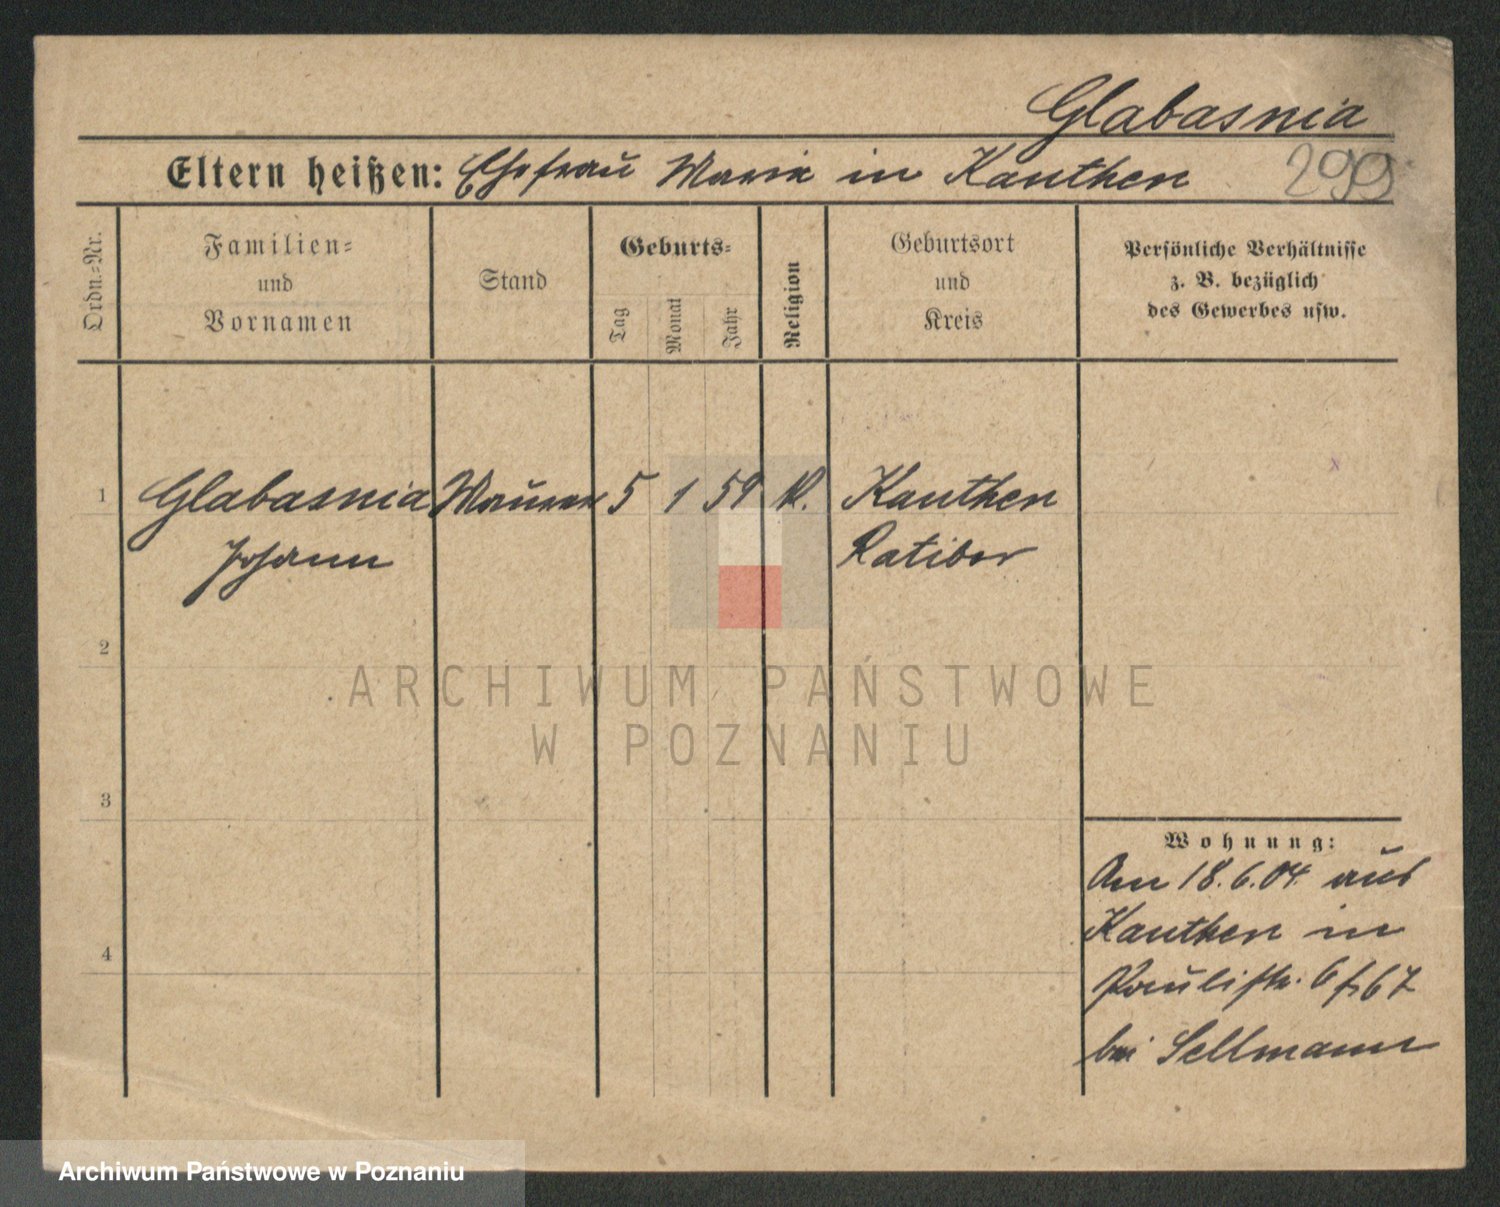 Glabasnia
Eltern heißen: Ehefrau Maria in Kauthen
299
Ordn.-Nr.
Familien-
und
Vornamen
Stand
Geburts-
Tag
Monat
Jahr
Religion
Geburtsort
und
Kreis
Persönliche Verhältnisse
z. B. bezüglich
des Gewerbes usw.
1 Glabasnia Maurer 5 1 59 k. Kauthen
Johann Ratibor
2
ARCHIWUM PAŃSTWOWE
W POZNANIU
3
Wohnung:
Am 18.6.04. aus
4 Kauthen in
Paulistr. 6
bei Sellmann
Archiwum Państwowe w Poznaniu